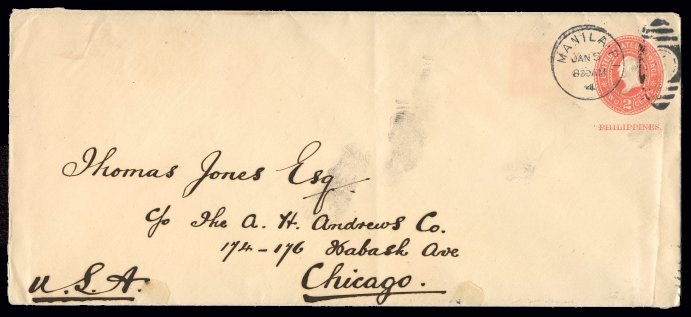 MANILA P
JAN 5
830AM
4
UNITED STATES
2
PHILIPPINES.
Thomas Jones Esq.
c/o The A. H. Andrews Co.
174-176 Wabash Ave
Chicago.
U.S.A.